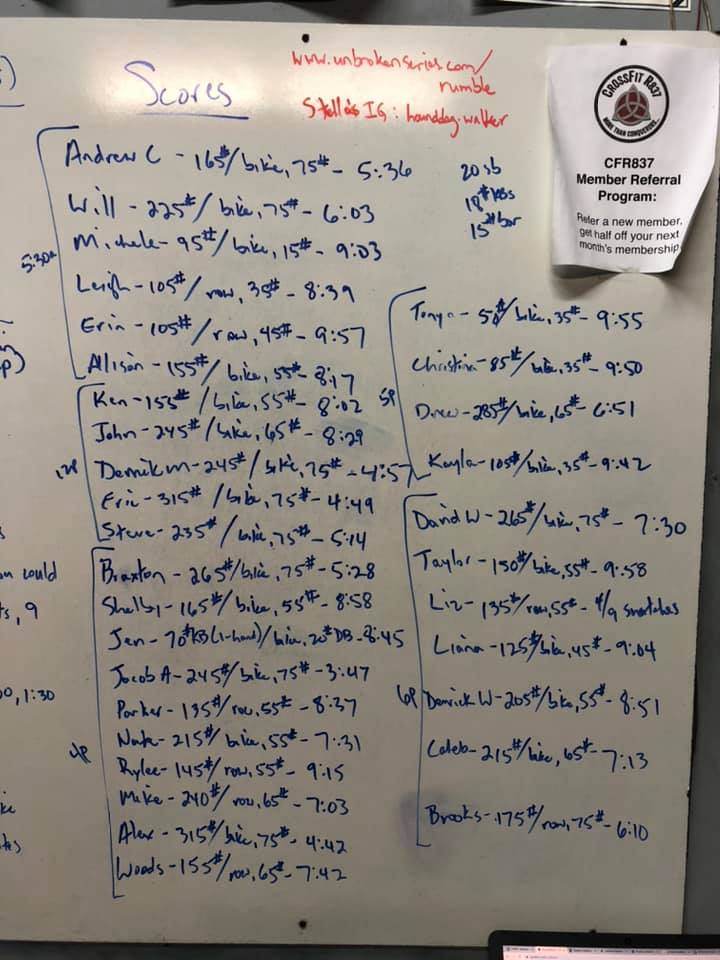 s)
Scores
www.unbrokenseries.com/
rumble
Stella's IG: hounddog.walker
CROSSFIT R837
MORE THAN CONQUERORS...
CFR837
Member Referral
Program:
Refer a new member,
get half off your next
month's membership
20 sb
18# KBs
15# bar
5:30A
Andrew C - 165#/bike, 75# - 5:36
Will - 225#/bike, 75# - 6:03
Michele - 95#/bike, 15# - 9:03
Leigh - 105#/row, 35# - 8:39
Erin - 105#/row, 45# - 9:57
Allison - 155#/bike, 55# - 8:17
12P
Ken - 155#/bike, 55# - 8:02
John - 245#/bike, 65# - 8:29
Derrik m - 245#/bike, 75# - 4:57
Eric - 315#/bike, 75# - 4:49
Steve - 235#/bike, 75# - 5:14
4P
Braxton - 265#/bike, 75# - 5:28
Shelby - 165#/bike, 55# - 8:58
Jen - 70# KB (1-hand)/bike, 20# DB - 8:45
Jacob A - 245#/bike, 75# - 3:47
Parker - 135#/row, 55# - 8:37
Nate - 215#/bike, 55# - 7:31
Rylee - 145#/row, 55# - 9:15
Mike - 240#/row, 65# - 7:03
Alex - 315#/bike, 75# - 4:42
Woods - 155#/row, 65# - 7:42
5P
Tonya - 50#/bike, 35# - 9:55
Christina - 85#/bike, 35# - 9:50
Drew - 285#/bike, 65# - 6:51
Kayla - 105#/bike, 35# - 9:42
6P
David W - 265#/bike, 75# - 7:30
Taylor - 150#/bike, 55# - 9:58
Liz - 135#/row, 55# - 4/9 snatches
Liana - 125#/bike, 45# - 9:04
Derrick W - 205#/bike, 55# - 8:51
Caleb - 215#/bike, 65# - 7:13
Brooks - 175#/row, 75# - 6:10
p)
could
ts, 9
00, 1:30
ke